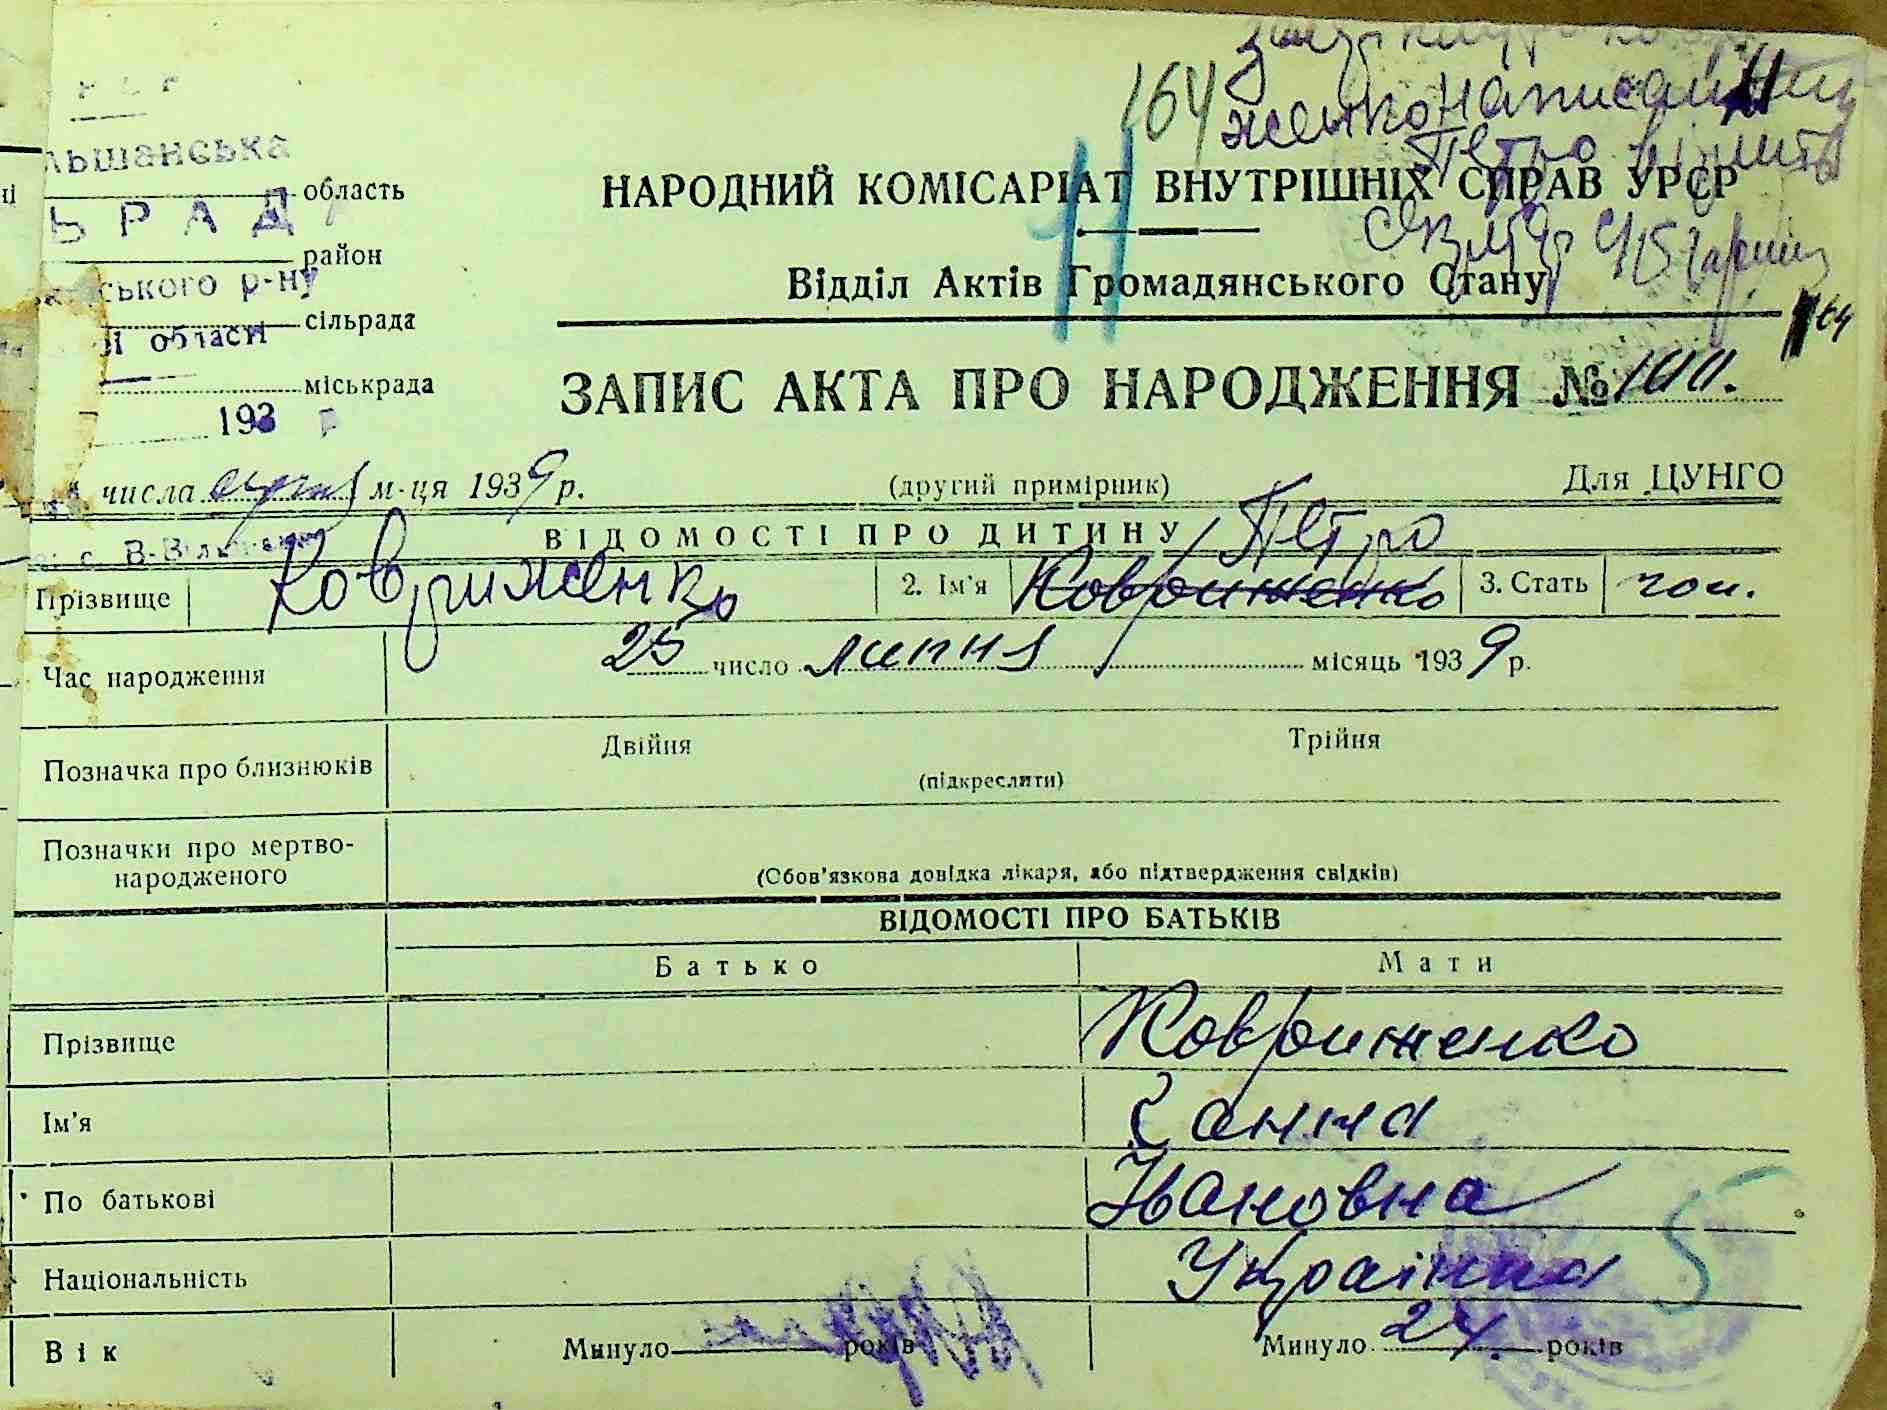 льшанська
область
ЬРАД
район
ського р-ну
сільрада
області
міськрада
193
164
написано
Петро вірить
НАРОДНИЙ КОМІСАРІАТ ВНУТРІШНІХ СПРАВ УРСР
11
Відділ Актів Громадянського Стану
164
ЗАПИС АКТА ПРО НАРОДЖЕННЯ №
числа серпня м-ця 1939 р.
(другий примірник)
Для ЦУНГО
ВІДОМОСТІ ПРО ДИТИНУ
Петро
Прізвище Ковриженко 2. Ім'я Ковриженко 3. Стать чол.
Час народження 25 число липня місяць 1939 р.
Позначка про близнюків Двійня Трійня
(підкреслити)
Позначки про мертво-
народженого
(Обов'язкова довідка лікаря, або підтвердження свідків)
ВІДОМОСТІ ПРО БАТЬКІВ
Батько Мати
Прізвище Ковриженко
Ім'я Ганна
По батькові Івановна
Національність Українка
5
Вік Минуло років Минуло 24. років